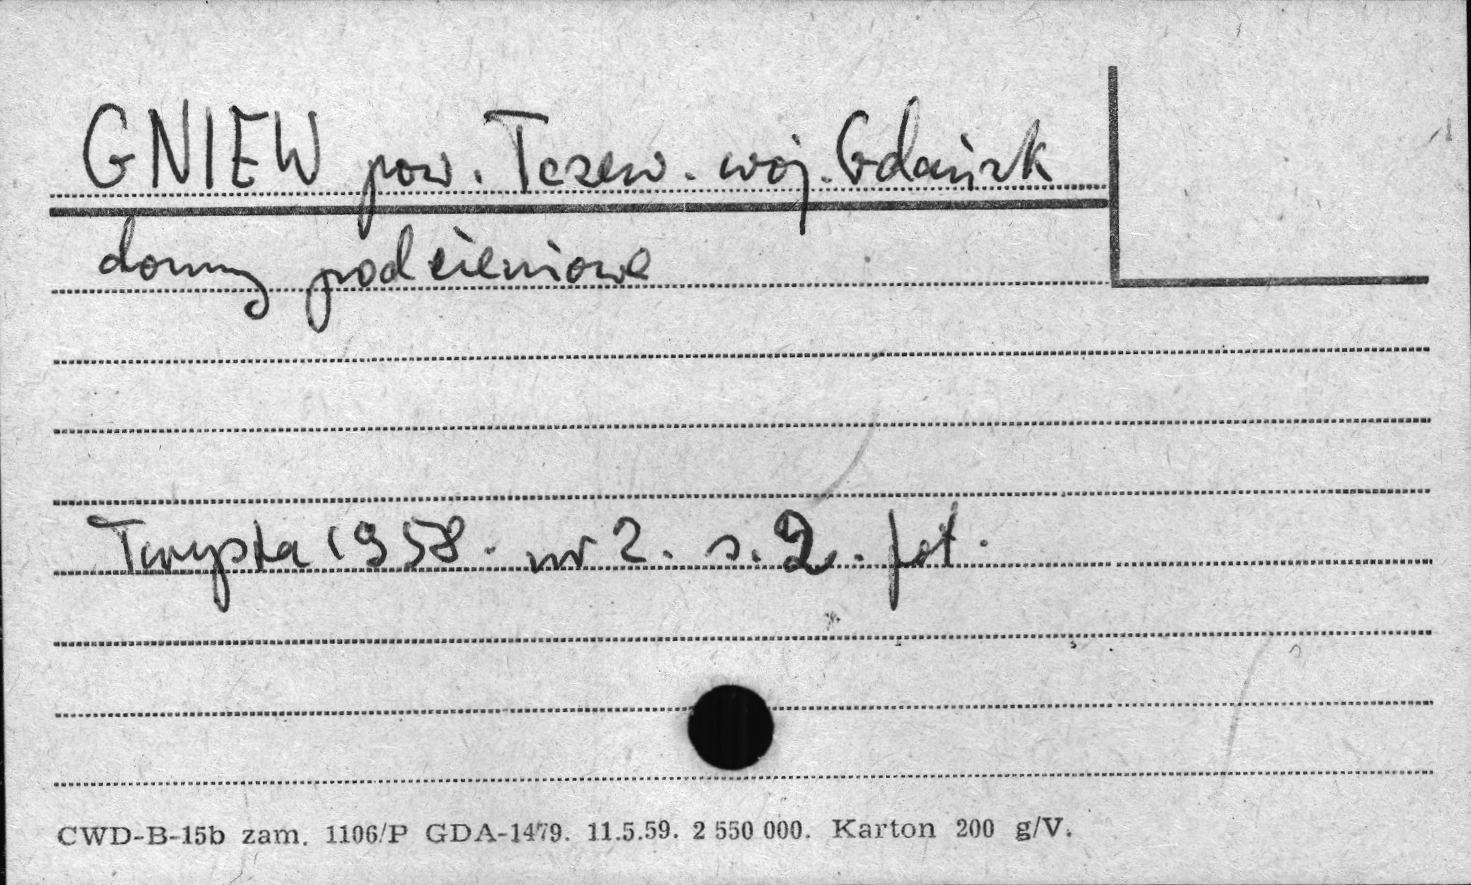 GNIEW pow. Tczew. woj. Gdańsk
domy podcieniowe
Turysta 1958. nr 2. s. 2. fot.
CWD-B-15b zam. 1106/P GDA-1479. 11.5.59. 2 550 000. Karton 200 g/V.